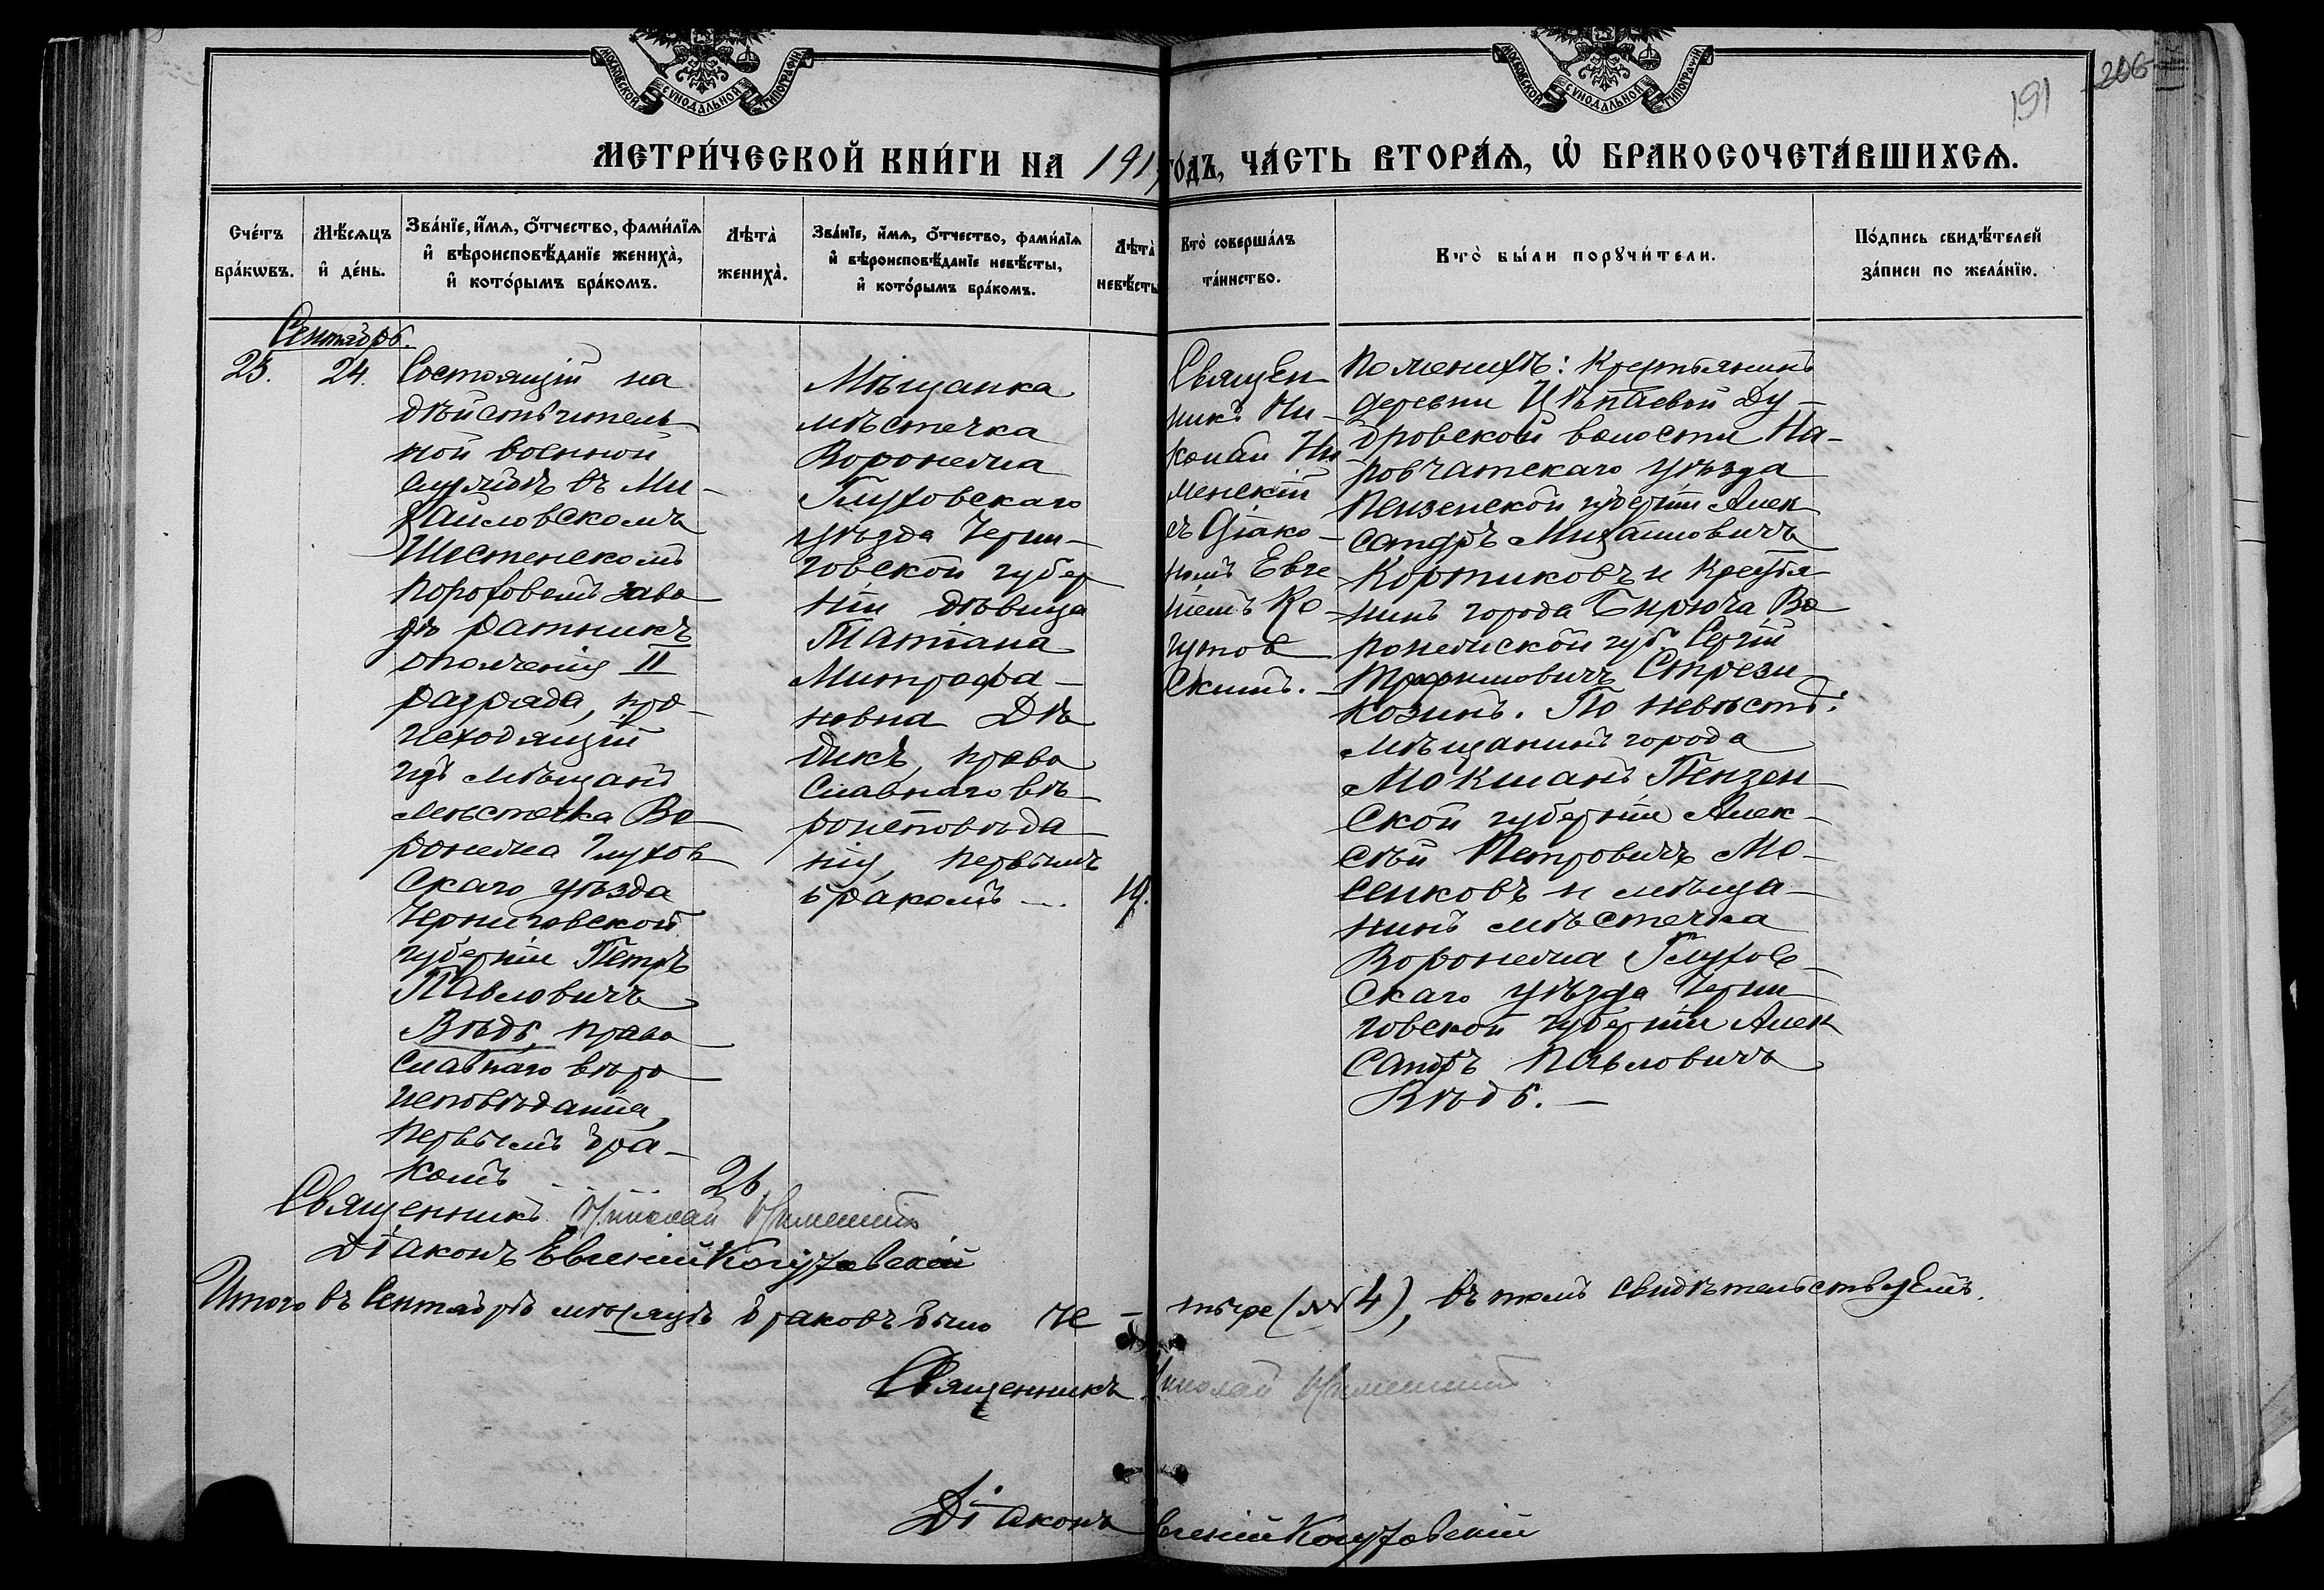 МОСКОВСКОЙ СУНОДАЛЬНОЙ ТИПОГРАФІИ
МОСКОВСКОЙ СУНОДАЛЬНОЙ ТИПОГРАФІИ
191
206
МЕТРИ́ЧЕСКОЙ КНИ́ГИ НА 191
ГО́ДЪ, ЧА́СТЬ ВТОРА́Ѧ, Ѡ҆ БРАКОСОЧЕТА́ВШИХСѦ.
Сче́тъ бра́кѡвъ.
Мѣ́сѧцъ и҆ де́нь.
Зва́нїе, и҆́мѧ, ѻ҆́тчество, фами́лїѧ
и҆ вѣроисповѣ́данїе жениха̀,
и҆ кото́рымъ бра́комъ.
Лѣ́та̀ жениха̀.
Зва́нїе, и҆́мѧ, ѻ҆́тчество, фами́лїѧ
и҆ вѣроисповѣ́данїе невѣ́сты,
и҆ кото́рымъ бра́комъ.
Лѣ́та̀ невѣ́сты
Кто̀ соверша́лъ та́инство.
Кто̀ бы́ли порꙋчи́тели.
По́дпись свидѣ́телей
за́писи по жела́нїю.
Сентябрь.
25.
24.
Состоящій на
дѣйствитель-
ной военной
службѣ въ Ми-
хайловскомъ
Шостенскомъ
пороховомъ заво
дѣ ратникъ
ополченія II
разряда, про-
исходящій
изъ мѣщанъ
мѣстечка Во-
ронежа Глухов-
скаго уѣзда
Черниговской
губерніи Петръ
Павловичъ
Вѣдь, право
славнаго вѣро
исповѣданія,
первымъ бра-
комъ
26
Мѣщанка
мѣстечка
Воронежа
Глуховскаго
уѣзда Черни-
говской губер
ніи дѣвица
Татіана
Митрофа-
новна Дѣ
дикъ, право
славнаго вѣ
роисповѣда
нія, первымъ
бракомъ
19.
Священ
никъ Ни-
колай Ни
менскій
съ Діако-
номъ Евге
ніемъ Ко-
гутов
скимъ.
По женихѣ: Крестьянинъ
деревни Цѣпаевой Ду-
дровской волости На-
ровчатскаго уѣзда
Пензенской губерніи Алек
сандръ Михайловичъ
Кортиковъ и крестья
нинъ города Бирюча Во
ронежской губ. Сергій
Трофимовичъ Стрези
козинъ. По невѣстѣ:
мѣщанинъ города
Мокшанъ Пензен
ской губерніи Алек-
сѣй Петровичъ Мо-
сенковъ и мѣща-
нинъ мѣстечка
Воронежа Глухов-
скаго уѣзда Черни
говской губерніи Алек
сандръ Павловичъ
Вѣдь.
Священникъ Николай
Діаконъ Евгеній Когутовскій
Итого въ Сентябрѣ мѣсяцѣ браковъ было че-тыре (№ 4), въ томъ свидѣтельствуемъ.
Священникъ Николай
Діаконъ Евгеній Когутовскій